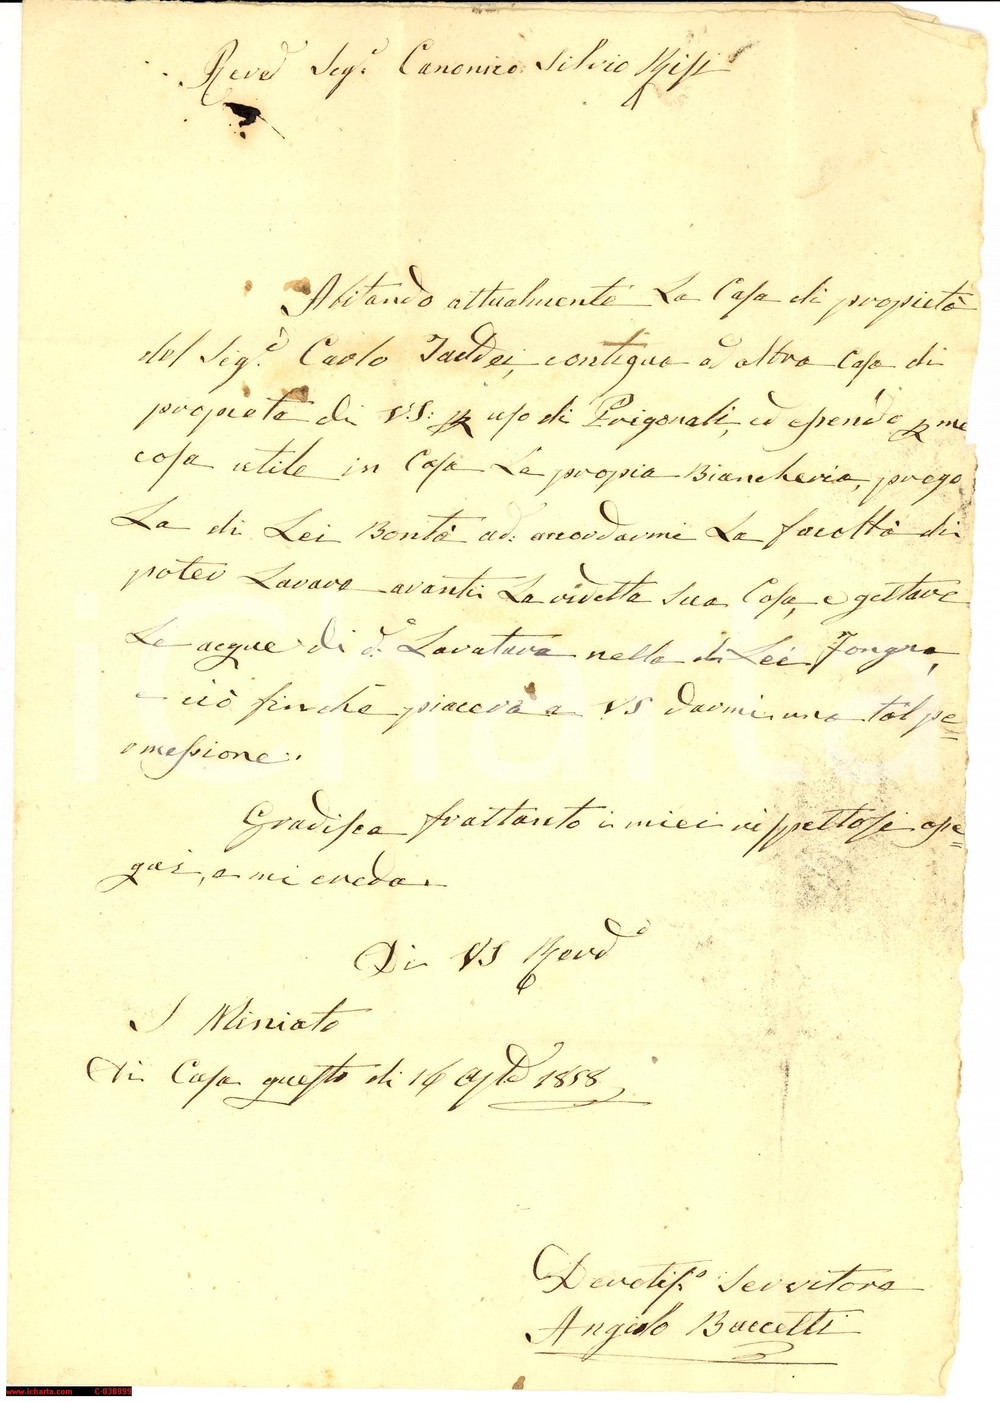 Revd Sigr Canonico Silvio
Abitando attualmente La Casa di propietà
del Sigre Carlo Taddei, contigua ad altra Casa di
propietà di V.S: p uso di Frigorali, ed essendo p me
cosa utile in Casa La propia Biancheria, prego
La di Lei Bontà ad: accordarmi La facoltà di
poter Lavare avanti La ridetta sua Casa, e gettare
Le acque di da Lavatura nella di Lei Fongra,
e ciò finchè piacerà a VS darmi una tal pe=
rmessione.
Gradisca frattanto i miei rispettosi osse=
qui, e mi creda
Di VS Revda
S Miniato
Di Casa questo di 16 1858
Devotisso Servitore
Angiolo Baccetti
www.icharta.com C-038899